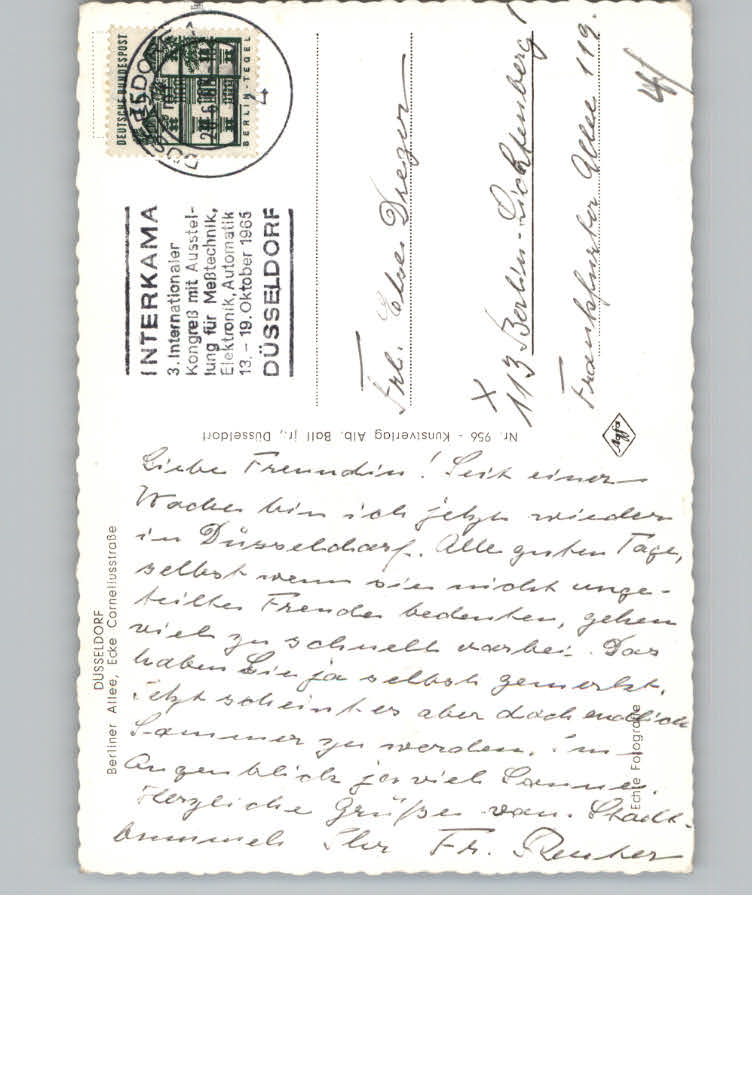 DEUTSCHE BUNDESPOST
BERLIN-TEGEL
DÜSSELDORF
4
INTERKAMA
3. Internationaler
Kongreß mit Ausstel-
lung für Meßtechnik,
Elektronik, Automatik
13. – 19. Oktober 1965
DÜSSELDORF
Frl.
X
113 Berlin-Lichtenberg
Frankfurter Allee 119.
Nr. 956 - Kunstverlag Alb. Ball jr., Düsseldorf
Agfa
DÜSSELDORF
Berliner Allee, Ecke Corneliusstraße
Echte Fotografie
Liebe Freundin! Seit einer
Woche bin ich jetzt wieder
in Düsseldorf. Alle guten Tage,
selbst wenn sie nicht unge-
teilte Freude bedeuten, gehen
viel zu schnell vorbei. Das
haben Sie ja selbst gemerkt.
Jetzt scheint es aber doch endlich
Sommer zu werden. Im
Augenblick ja viel Sonne.
Herzliche Grüße vom Stadt-
bummel Ihr Fr. Reuter